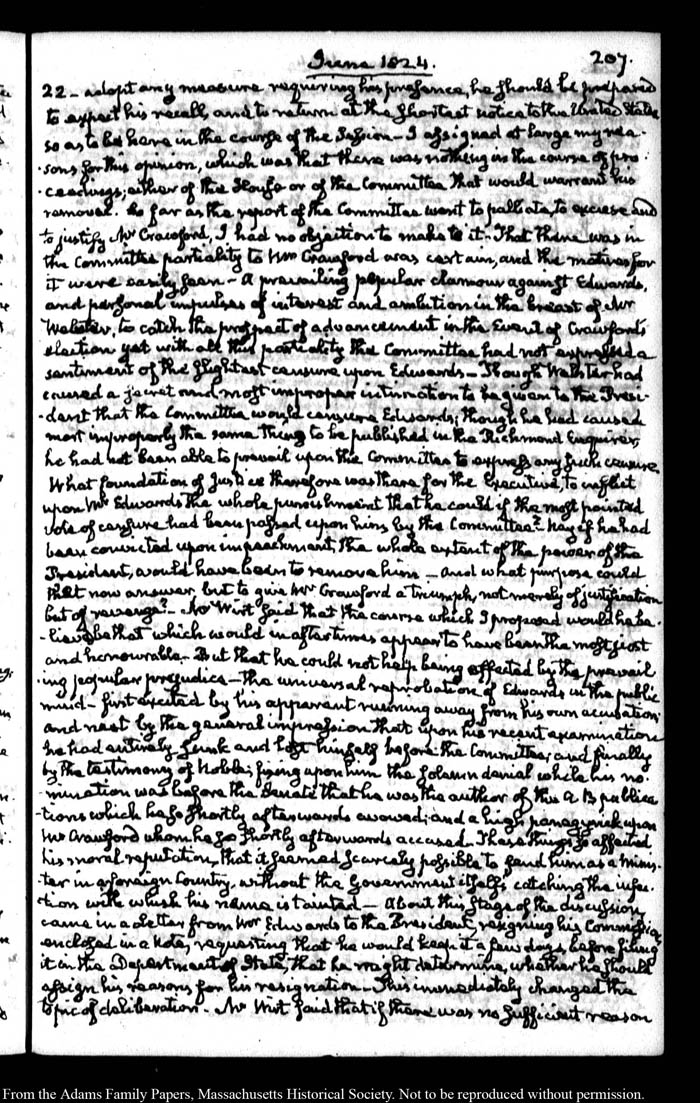 June 1824.
207.
22 - adopt any measure requiring his presence, he should be prepared
to expect his recall, and to return at the shortest notice to the United States
so as to be here in the course of the Session - I assigned at large my rea-
-sons for this opinion, which was that there was nothing in the course of pro-
-ceedings, either of the House or of the Committee that would warrant his
removal. So far as the report of the Committee went to palliate, to excuse and
to justify Mr Crawford, I had no objection to make to it - That there was in
the Committee partiality to Mr Crawford was certain, and the motives for
it were easily seen - A prevailing popular clamour against Edwards,
and personal impulses of interest and ambition in the breast of Mr
Webster, to catch the prospect of advancement in the Event of Crawford's
election yet with all this partiality the Committee had not expressed a
sentiment of the slightest censure upon Edwards - Though Webster had
caused a secret and most improper intimation to be given to the Presi-
-dent that the Committee would censure Edwards; though he had caused
most improperly the same thing to be published in the Richmond Enquirer,
he had not been able to prevail upon the Committee to express any such censure
What foundation of Justice therefore was there for the Executive, to inflict
upon Mr Edwards the whole punishment that he could if the most pointed
vote of censure had been passed upon him by the Committee? Nay if he had
been convicted upon impeachment, the whole extent of the power of the
President, would have been to remove him - and what purpose could
that now answer, but to give Mr Crawford a triumph, not merely of justification
but of revenge? - Mr Wirt said that the course which I proposed would he be-
-lieve be that which would in after times appear to have been the most just
and honourable - But that he could not help being affected by the prevail
-ing popular prejudice - the universal reprobation of Edwards in the public
mind - first excited by his apparent running away from his own accusation,
and next by the general impression that upon his recent examination
he had entirely sunk and lost himself before the Committee; and finally
by the testimony of Noble; fixing upon him the solemn denial while his no-
-mination was before the Senate that he was the author of the A B publica
-tions which he so shortly afterwards avowed; and a high panegyrick upon
Mr Crawford whom he so shortly afterwards accused. These things so affected
his moral reputation, that it seemed scarcely possible to send him as a minis-
-ter in a foreign Country, without the Government itself's catching the infec-
-tion with which his name is tainted - About this stage of the discussion
came in a Letter from Mr Edwards to the President, resigning his Commission,
enclosed in a Note, requesting that he would keep it a few days before filing
it in the Department of State, that he might determine, whether he should
assign his reasons for his resignation. This immediately changed the
topic of deliberation. Mr Wirt said that if there was no sufficient reason
From the Adams Family Papers, Massachusetts Historical Society. Not to be reproduced without permission.